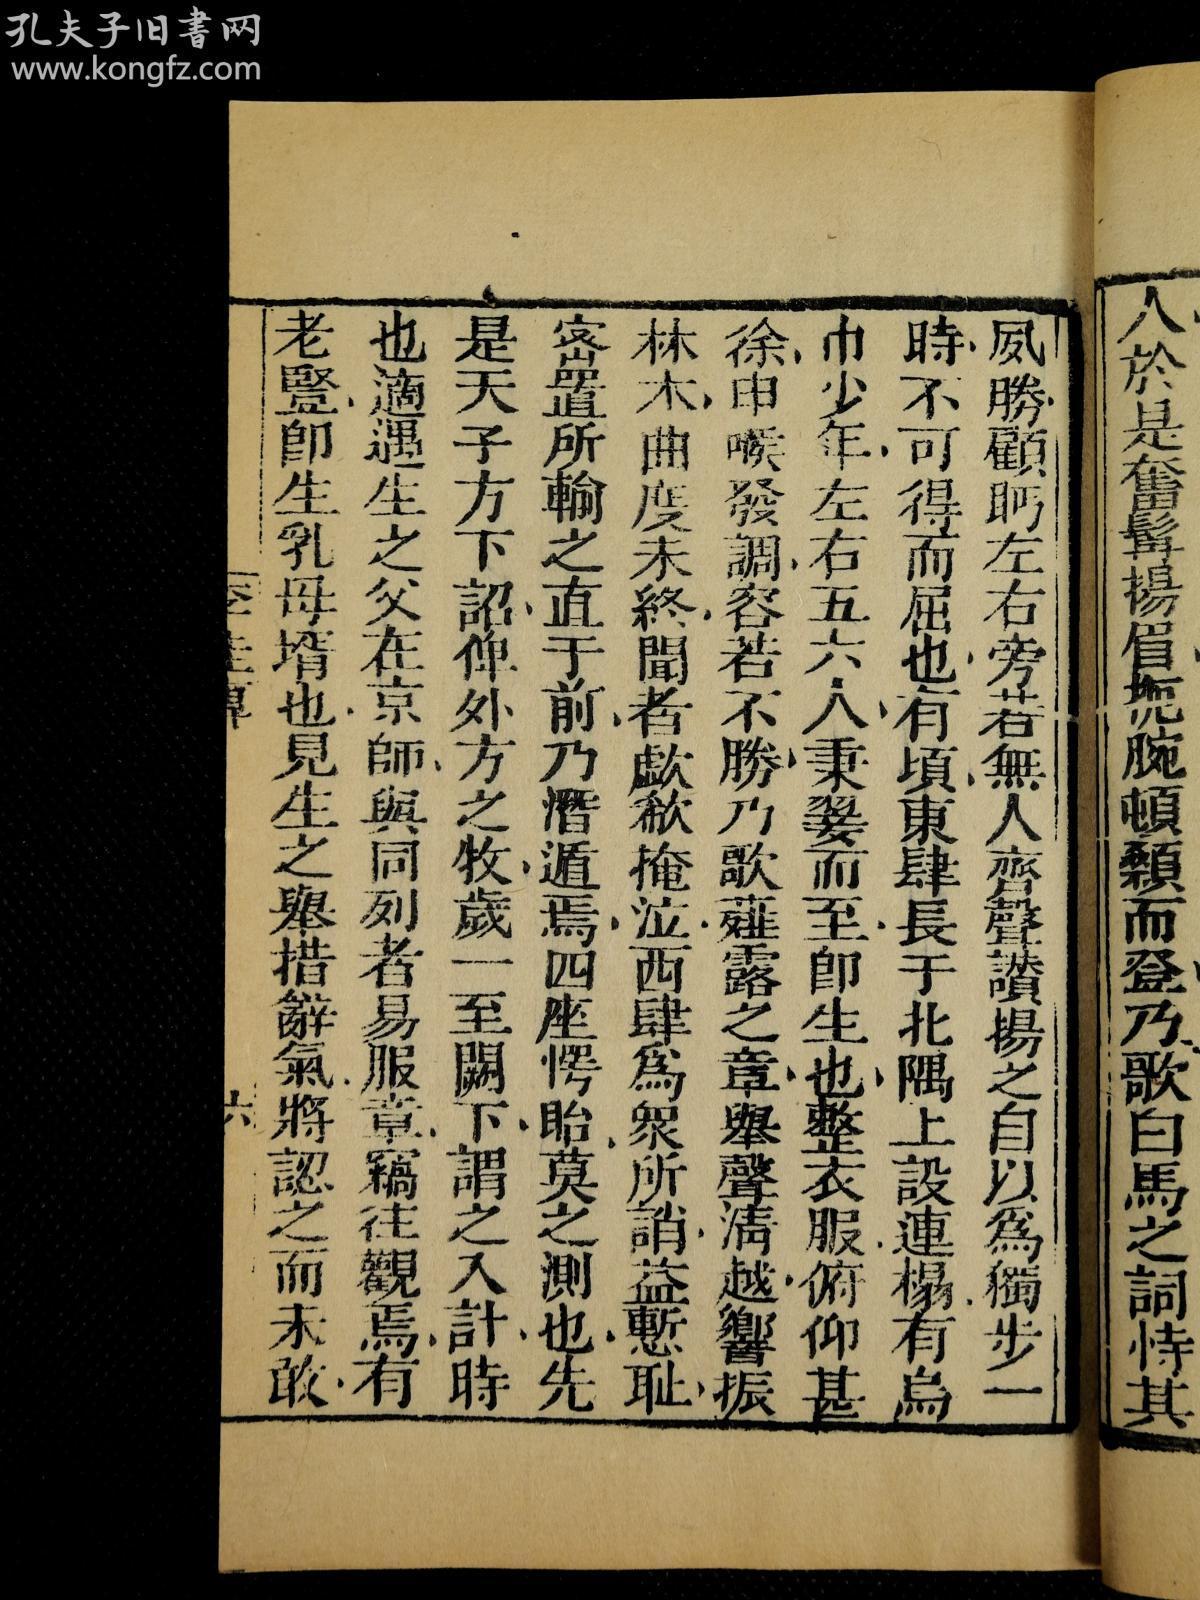 孔夫子旧書网
www.kongfz.com
人於是奮髯揚眉扼腕頓顙而登乃歌白馬之詞恃其
夙勝顧眄左右旁若無人齊聲讚揚之自以爲獨步一
時不可得而屈也有頃東肆長于北隅上設連榻有烏
巾少年左右五六人秉翣而至卽生也整衣服俯仰甚
徐申喉發調容若不勝乃歌薤露之章舉聲淸越響振
林木曲度未終聞者歔欷掩泣西肆爲衆所誚益慙耻
密置所輸之直于前乃潛遁焉四座愕眙莫之測也先
是天子方下詔俾外方之牧歲一至闕下謂之入計時
也適遇生之父在京師與同列者易服章竊往觀焉有
老豎卽生乳母壻也見生之舉措辭氣將認之而未敢
六